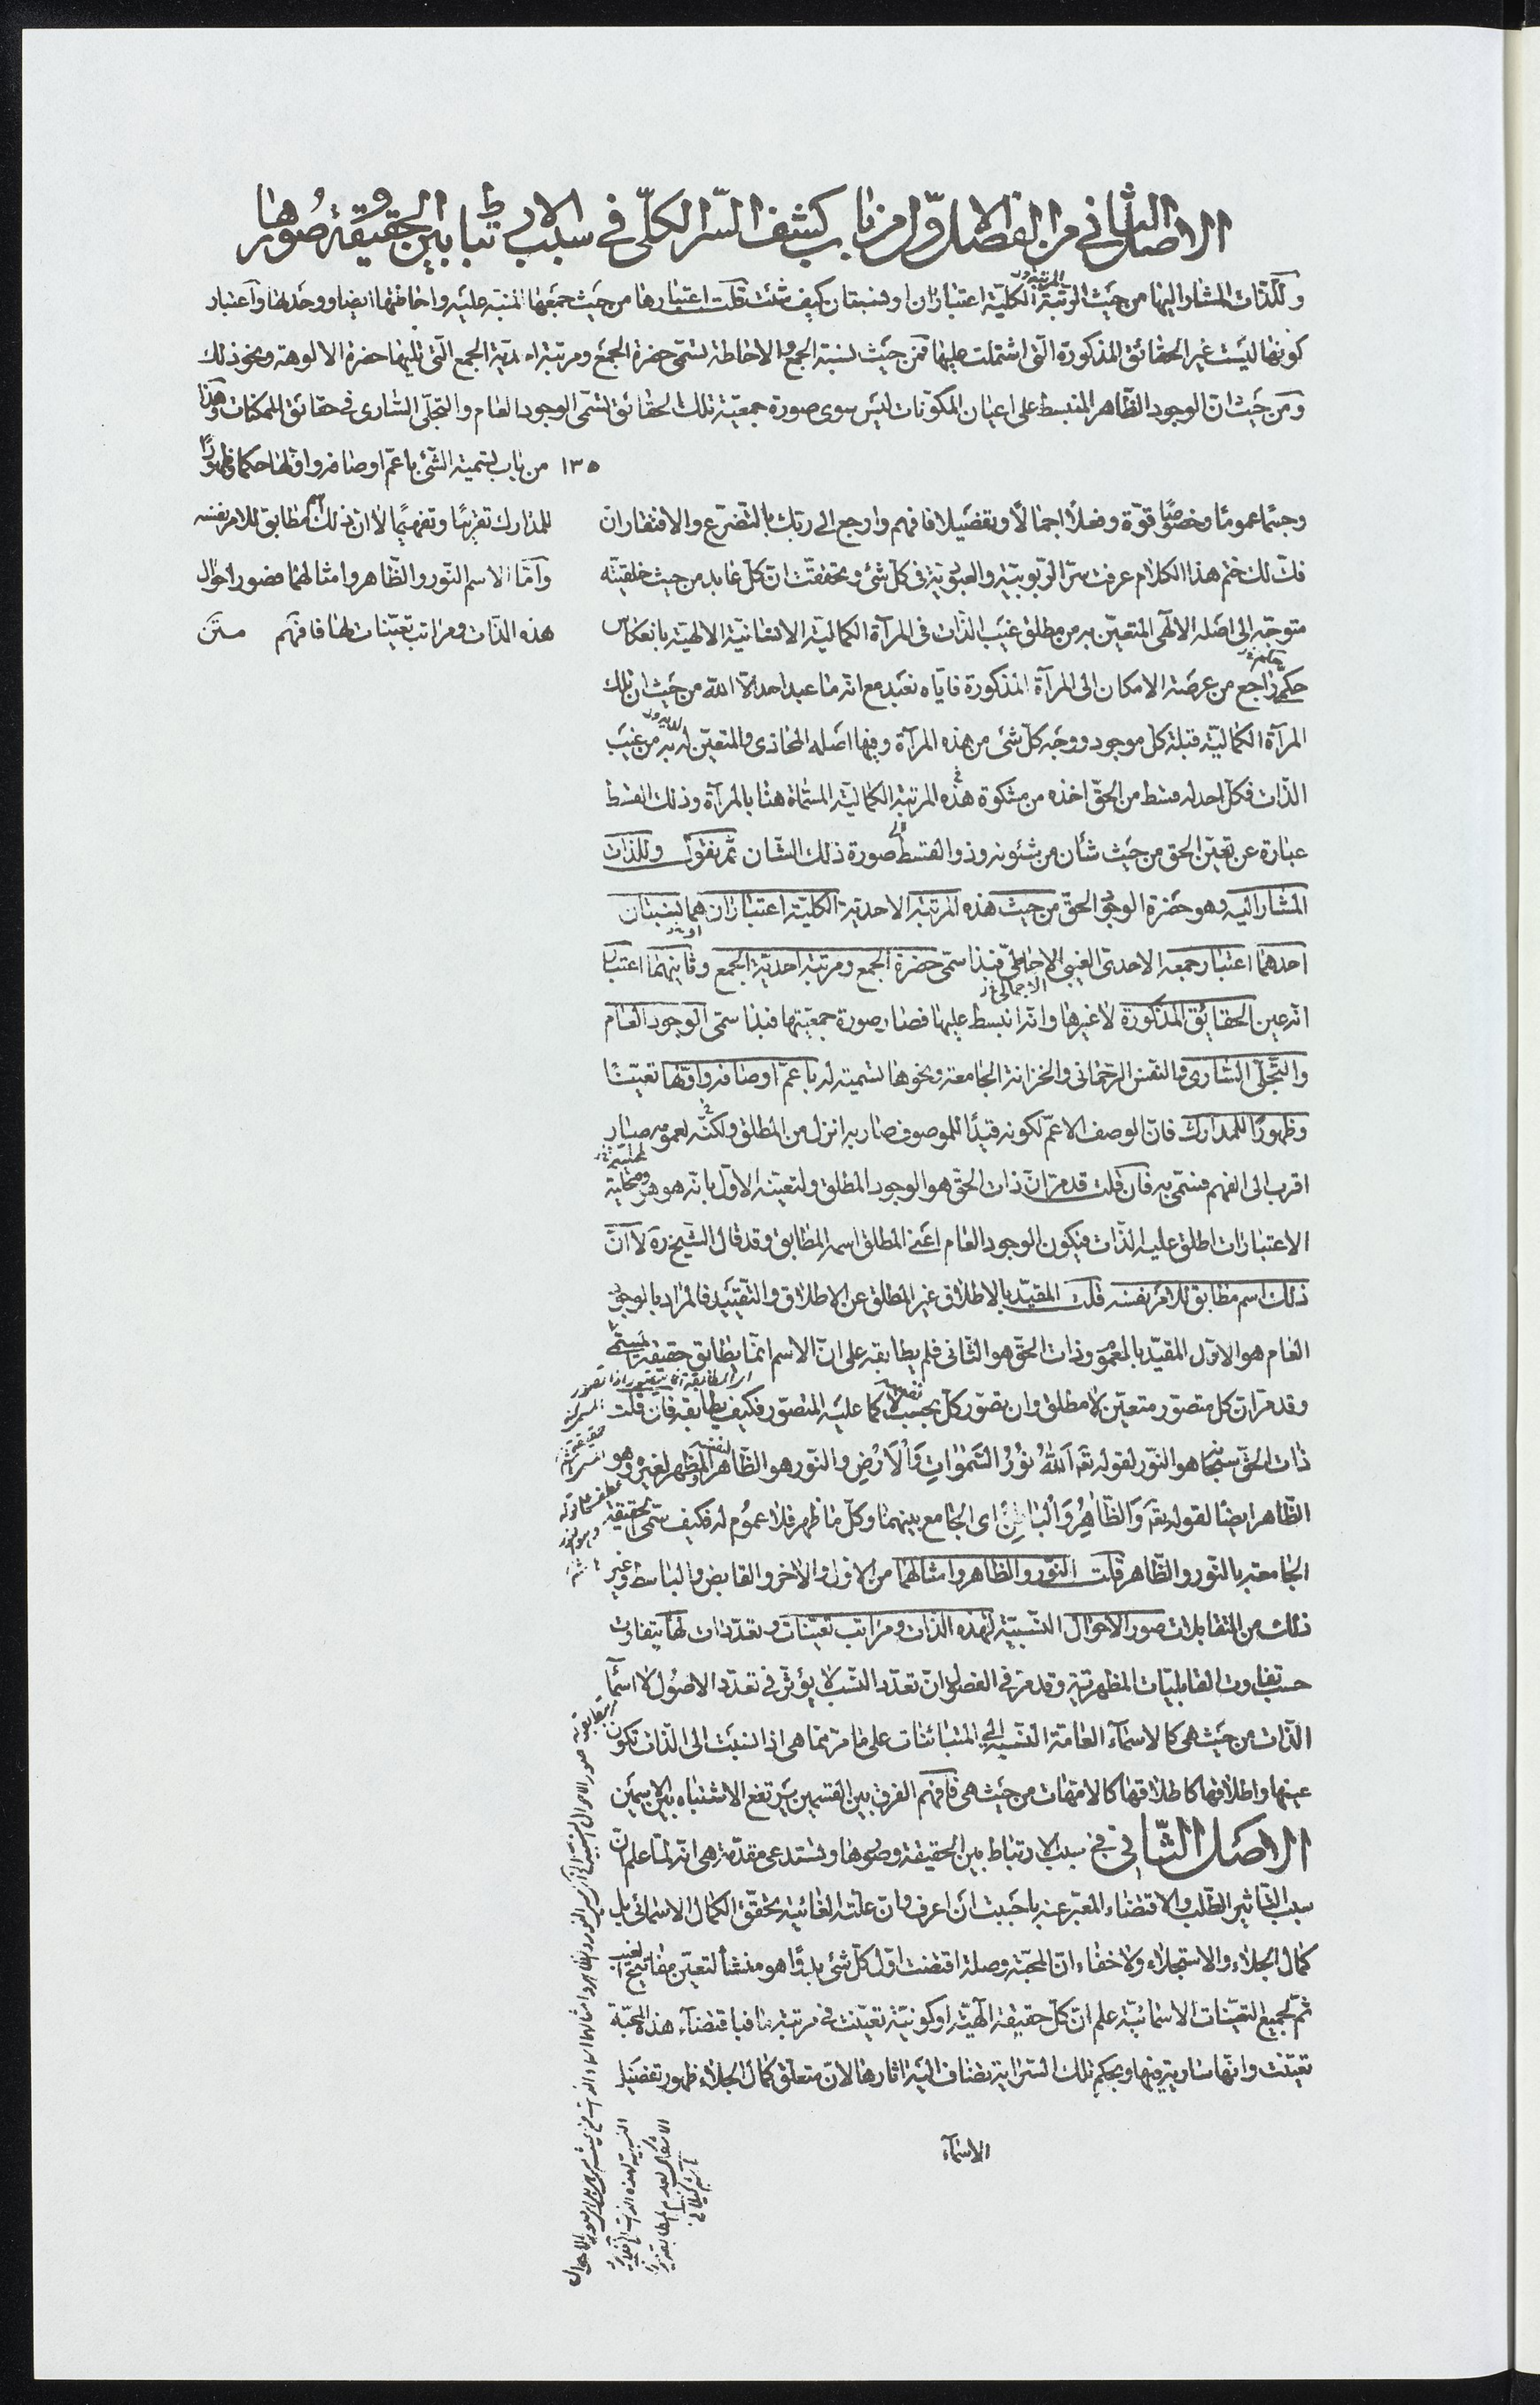 الاصل الثاني من الفصل الاول من باب كشف السر الكلي في سبب الارتباط بين الحقيقة وصورها
وللذات المشار اليها من حيث المرتبة الكلية اعتباران او نسبتان كيف شئت قلت اعتبارها من حيث جمعها المنبه عليه واحاطتها ايضا ووحدتها واعتبار
كونها ليست غير الحقائق المذكورة التى اشتملت عليها فمن حيث نسبة الجمع والاحاطة تسمّى حضرة الجمع ومرتبة احدية الجمع التى تليها حضرة الالوهة ونحو ذلك
ومن حيث انّ الوجود الظّاهر المنبسط على اعيان المكوّنات ليس سوى صورة جمعيّة تلك الحقائق تسمّى الوجود العام والتجلّى السّارى فى حقائق الممكنات وهذا
١٣٥ من باب تسمية الشّئ باعمّ اوصافه واوّلها حكما وظهورًا
للمدارك تقريبًا وتفهيمًا لا ان ذلك اسم مطابق للامر نفسه
وامّا الاسم النّور والظّاهر وامثالهما فصور احوال
هذه الذّات ومراتب تعيّنات لها فافهم متن
وحيثما عمومًا وخصوصًا قوّة وفعلًا اجمالًا وتفصيلا فافهم وارجع الى ربّك بالتّضرّع والافتقار ان
فكّ لك ختم هذا الكلام عرفت سرّ الرّبوبيّة والعبوديّة فى كلّ شئ وتحقّقت انّ كلّ عابد من حيث خلقيّته
متوجّه الى اصله الالهى المتعيّن به من مطلق غيب الذّات فى المرآة الكماليّة الانسانيّة الالهيّة بانعكاس
حكم راجع من عرصة الامكان الى المرآة المذكورة فايّاه نعبد مع انّه ما عبد احد الّا الله من حيث ان تلك
المرآة الكماليّة قبلة كل موجود ووجه كلّ شئ من هذه المرآة وفيها اصله المحاذى والمتعيّن له به من غيب
الذّات فكلّ احد له قسط من الحقّ اخذه من مشكوة هذه المرتبة الكماليّة المسمّاة هنا بالمرآة وذلك القسط
عبارة عن تعيّن الحق من حيث شأن من شئونه وذو القسط صورة ذلك الشّان ثم نقول وللذات
المشار اليه وهو حضرة الوجود الحقّ من حيث هذه المرتبة الاحدية الكليّة اعتباران هما نسبتان
احدهما اعتبار جمعه الاحدى الغيبى الاحاطىّ فبذا سمّى حضرة الجمع ومرتبة احديّة الجمع وثانيهما اعتبار
انّه عين الحقائق المذكورة لا غيرها وانّه انبسط عليها فصار صورة جمعيّتها فبذا سمّى الوجود العام
والتّجلّى السّارى والنفس الرّحمانى والخزانة الجامعة ونحوها تسمية له باعمّ اوصافه واوّلها تعيّنًا
وظهورًا للمدارك فانّ الوصف الاعمّ لكونه قيدًا للموصوف صار به انزل من المطلق ولكنّه لعمومه صار
اقرب الى الفهم فسمّى به فان قلت قد مرّ انّ ذات الحقّ هو الوجود المطلق وتعيّنه الاوّل بانّه هو هو
الاعتبارات اطلق عليه الذّات فيكون الوجود العام اعنى المطلق اسمه المطابق وقد قال الشيخ ره لا انّ
ذلك اسم مطابق للامر نفسه قلت المقيّد بالاطلاق غير المطلق عن الاطلاق والتّقييد فالمراد بالوجود
العام هو الاوّل المقيّد بالعموم وذات الحقّ هو الثّانى فلم يطابقه على انّ الاسم انمّا يطابق حقيقة المسمّى
وقد مرّ انّ كل متصوّر متعيّن لا مطلق وان تصوّر كلّ بحسبه لا كما عليه المتصوّر فكيف يطابقه فان قلت
ذات الحقّ سبحانه هو النّور لقوله تعه اَللّٰهُ نُوْرُ السَّمٰوٰاتِ وَاْلاَرْضِ والنّور هو الظّاهر لنفسه المظهر لغيره وهو
الظّاهر ايضًا لقوله تعه وَالظّاٰهِرُ وَاْلبٰاطِنُ اى الجامع بينهما وكلّ ما ظهر فلا عموم له فكيف سمّى الحقيقة
الجامعة بالنّور والظّاهر قلت النّور والظاهر وامثالهما من الاوّل والآخر والقابض والباسط وغير
ذلك من المتقابلات صور الاحوال النّسبيّة لهذه الذّات ومراتب تعيّنات وتعدّدات لها يتفاوت
حسب تفاوت القابليّات المظهريّة وقد مرّ فى الفصل انّ تعدّد النّسب لا يؤثّر فى تعدّد الاصول لا اسمآء
الذّات من حيث هى كالاسمآء العامّة النّسبة الى المتبائنات على ما مرّ ممّا هى اذا نسبت الى الذّات تكون
عينها واطلاقها كاطلاقها كالامّهات من حيث هى فافهم الفرق بين القسمين يرتفع الاشتباه بين الاسمين
الاصل الثّانى فى سبب الارتباط بين الحقيقة وصورها ويستدعى مقدّمة هى انّه لمّا علم انّ
سبب التّاثير الطّلب والاقتضاء المعبّر عنه باحببت ان اعرف وانّ علّته الغائيّة تحقّق الكمال الاسمائى بل
كمال الجلاء والاستجلاء ولا خفاء انّ المحبّة وصلة اقتضت اوّل كلّ شئ بدوًا هو منشأ لتعيّن مفاتيح الغيب
ثمّ لجميع التعيّنات الاسمائيّة علم انّ كلّ حقيقة الهيّة او كونيّة تعيّنت فى مرتبة ما فباقتضآء هذه المحبّة
تعيّنت وانّها سارية فيها وبحكم تلك السّراية تضاف اليه اثارها لانّ متعلّق كمال الجلاء ظهور تفصيل
الاسمآء